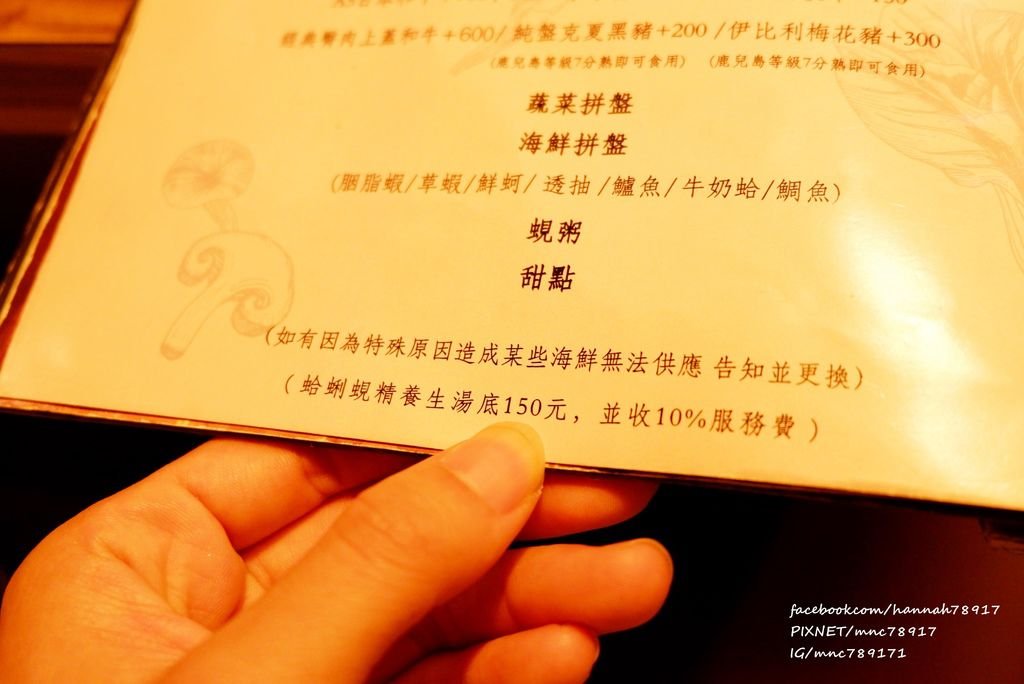 經典臀肉上蓋和牛+600/ 純盤克夏黑豬+200 /伊比利梅花豬+300
(鹿兒島等級7分熟即可食用) (鹿兒島等級7分熟即可食用)
蔬菜拼盤
海鮮拼盤
(胭脂蝦/草蝦/鮮蚵/ 透抽 /鱸魚/牛奶蛤/鯛魚)
蜆粥
甜點
(如有因為特殊原因造成某些海鮮無法供應 告知並更換)
( 蛤蜊蜆精養生湯底150元, 並收10%服務費 )
facebookcom/hannah78917
PIXNET/mnc78917
IG/mnc789171